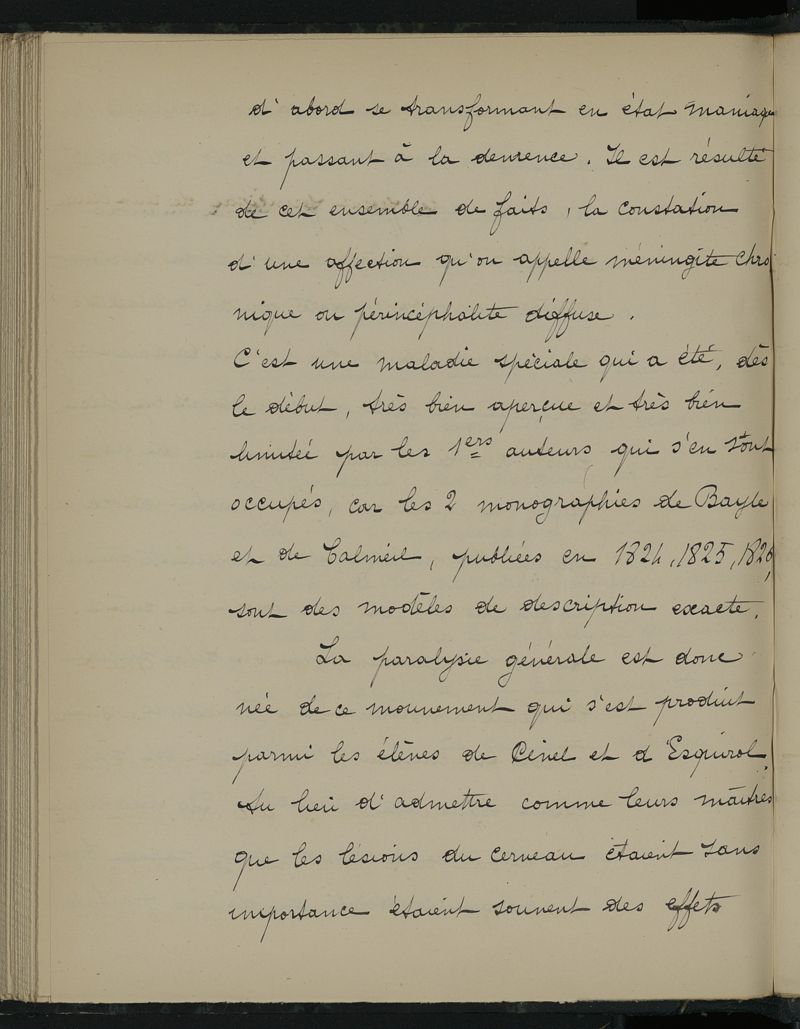 d'abord se transformant en état maniaque
et passant à la demence. Il est résulté
de cet ensemble de faits, la constation
d'une affection qu'on appelle méningite chro
nique ou périncéphalite diffuse.
C'est une maladie spéciale qui a été, dès
le début, très bien aperçue et très bien
limitée par les 1ers auteurs qui s'en sont
occupés, car les 2 monographies de Bayle
et de Calmeil, publiées en 1824, 1825, 1826,
sont des modèles de description exacte.
La paralysie générale est donc
née de ce mouvement qui s'est produit
parmi les élèves de Pinel et d'Esquirol.
Au lieu d'admettre comme leurs maîtres
que les lésions du cerveau étaient sans
importance étaient souvent des effets